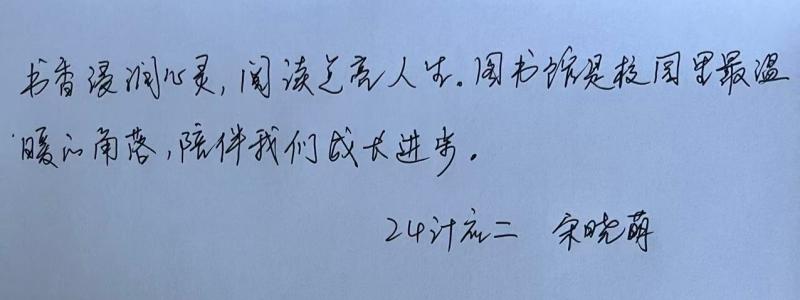 书香浸润心灵，阅读点亮人生。图书馆是校园里最温
暖的角落，陪伴我们成长进步。
24计应二 宋晓萌